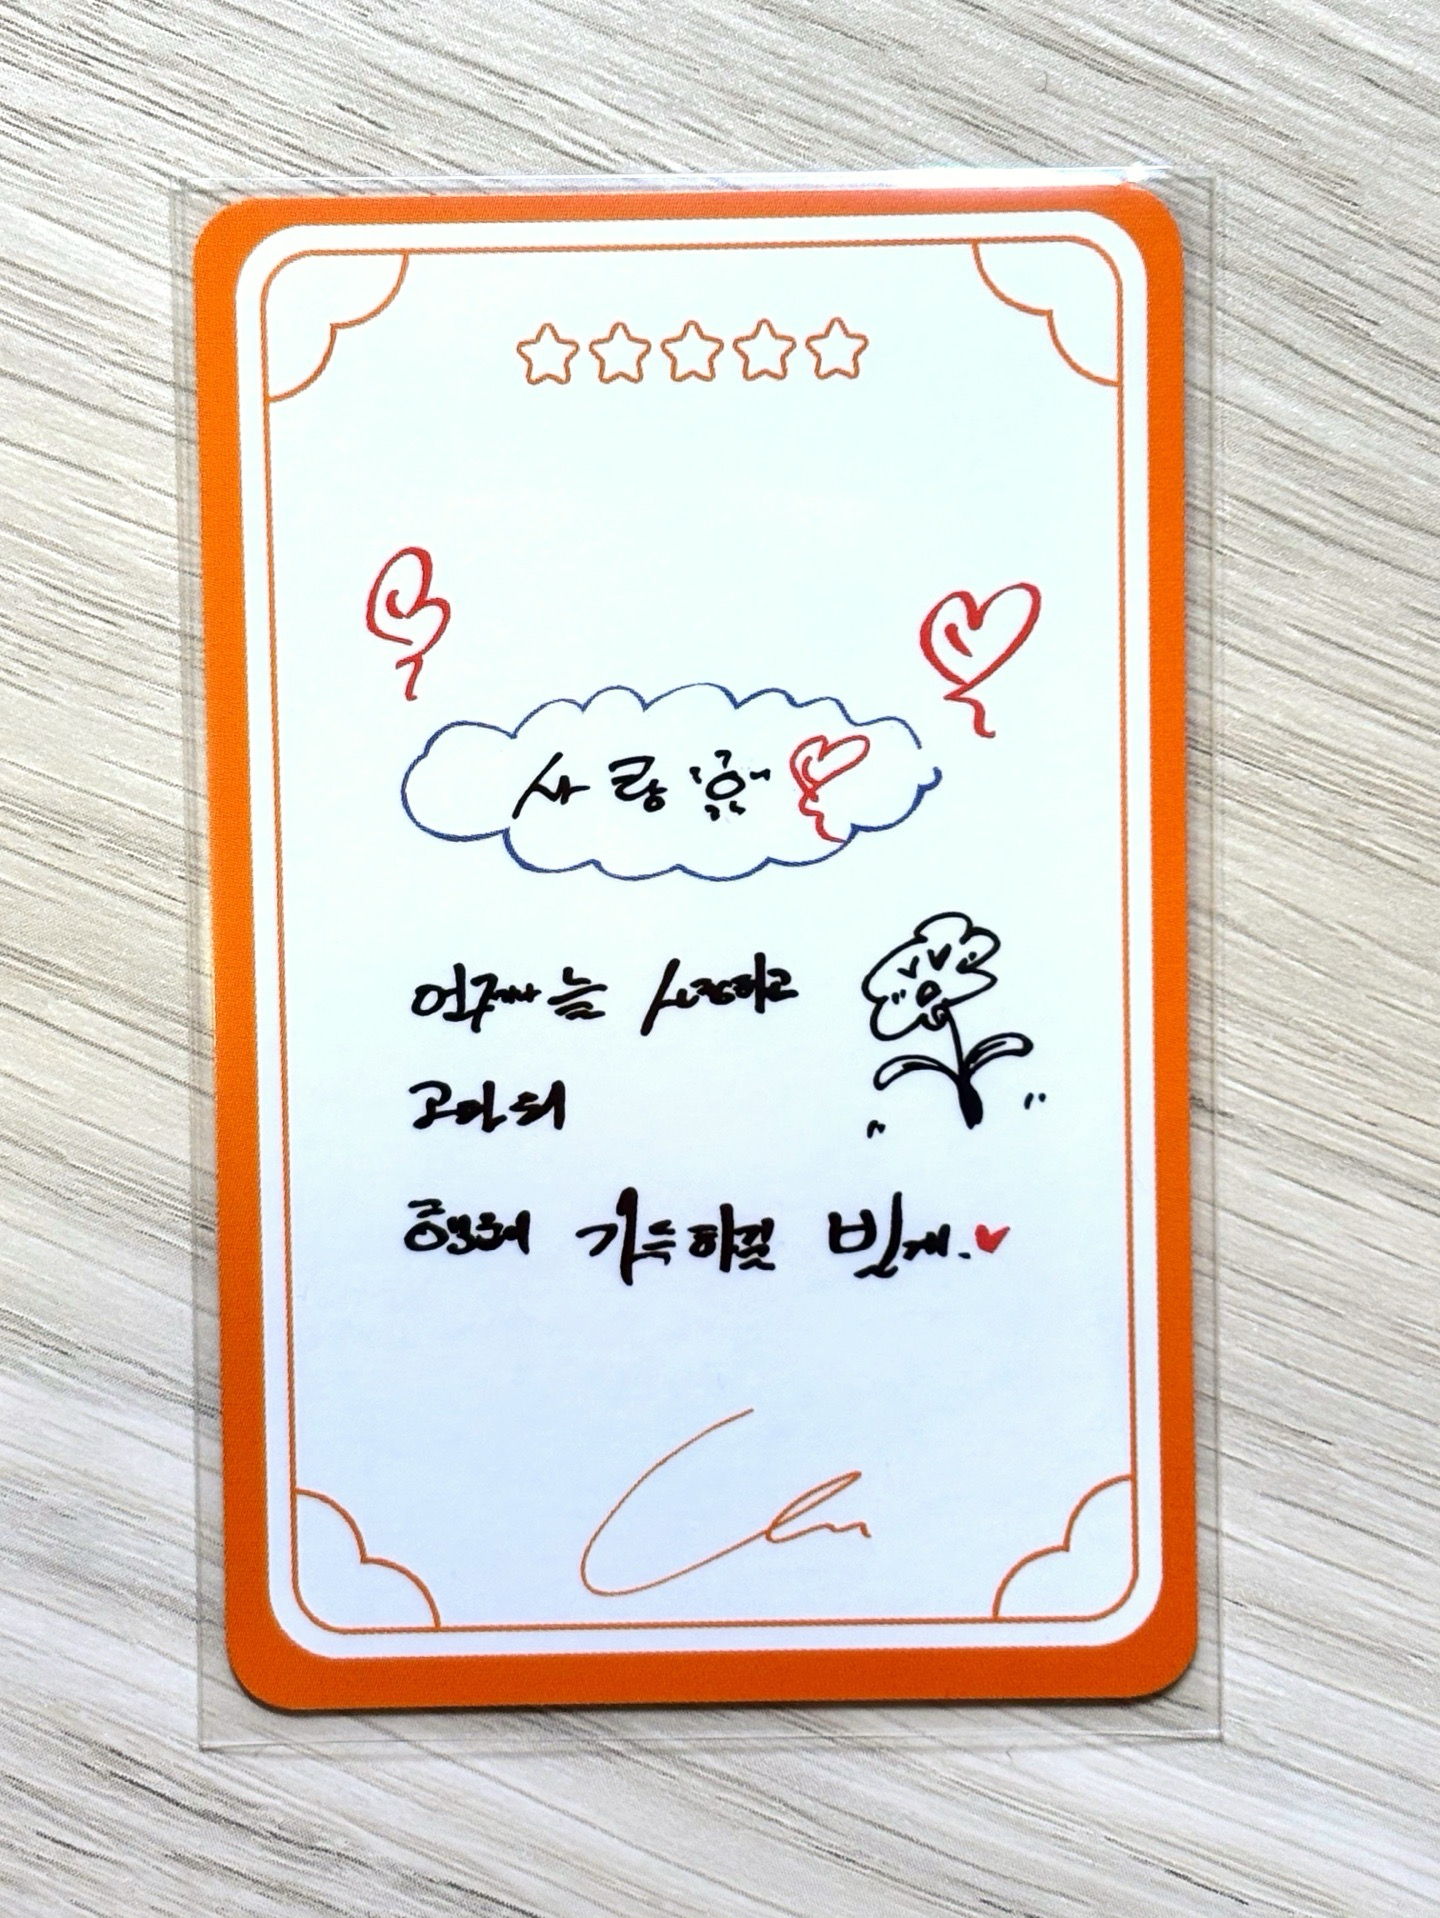 사랑훼
언제나 늘 사랑하고
고마워
행복이 가득하길 빌게.